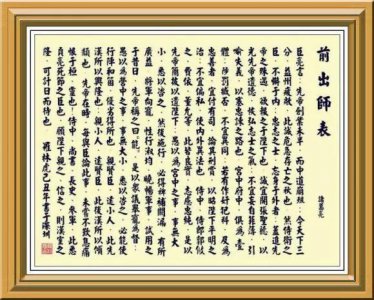 前出師表
諸葛亮
臣亮言:先帝創業未半,而中道崩殂,今天下三
分,益州疲敝,此誠危急存亡之秋也,然侍衛之
臣,不懈于內,忠志之士,忘身于外者,蓋追先
帝之殊遇,欲報之于陛下也,誠宜開張聖聽,以
光先帝遺德,恢弘志士之氣,不宜妄自菲薄,引
喻失義,以塞忠諫之路也,宮中府中,俱為壹
體,陟罰臧否,不宜異同,若有作奸犯科,及為
忠善者,宜付有司,論其刑賞,以昭陛下平明之
治,不宜偏私,使內外異法也,侍中,侍郎郭攸
之,費依,董允等,此皆良實,志慮忠純,是以
先帝簡拔以遺陛下,愚以為宮中之事,事無大
小,悉以咨之,然後施行,必得裨補闕漏,有所
廣益,將軍向寵,性行淑均,曉暢軍事,試用之
于昔日,先帝稱之曰能,是以眾議舉寵為督,
愚以為營中之事,事無大小,悉以咨之,必能使
行陣和穆,優劣得所也,親賢臣,遠小人,此先
漢所以興隆也,親小人,遠賢臣,此後漢所以傾
頹也,先帝在時,每與臣論此事,未嘗不嘆息痛
恨于桓,靈也,侍中,尚書,長史,參軍,此悉
貞亮死節之臣也,願陛下親之,信之,則漢室之
隆,可計日而待也 羅林虎己丑年書于深圳